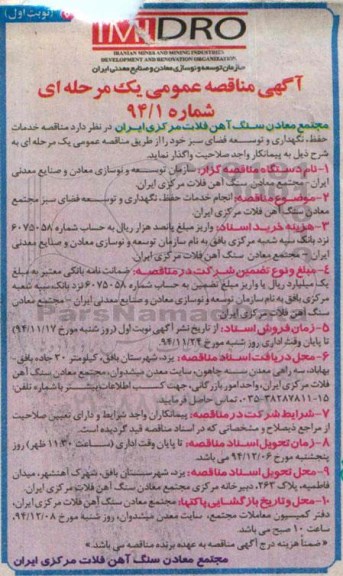 (نوبت اول)
IMIDRO
IRANIAN MINES AND MINING INDUSTRIES
DEVELOPMENT AND RENOVATION ORGANIZATION
سازمان توسعه و نوسازی معادن و صنایع معدنی ایران
آگهی مناقصه عمومی یک مرحله ای
شماره ۹۴/۱
مجتمع معادن سنگ آهن فلات مرکزی ایران در نظر دارد مناقصه خدمات
حفظ، نگهداری و توسعه فضای سبز خود را از طریق مناقصه عمومی یک مرحله ای به
شرح ذیل به پیمانکار واجد صلاحیت واگذار نماید.
۱- نام دستگاه مناقصه گزار: سازمان توسعه و نوسازی معادن و صنایع معدنی
ایران - مجتمع معادن سنگ آهن فلات مرکزی ایران.
۲- موضوع مناقصه: انجام خدمات حفظ، نگهداری و توسعه فضای سبز مجتمع
معادن سنگ آهن فلات مرکزی ایران
۳- هزینه خرید اسناد: واریز مبلغ پانصد هزار ریال به حساب شماره ۶۰۷۵۰۵۸
نزد بانک سپه شعبه مرکزی بافق به نام سازمان توسعه و نوسازی معادن و صنایع معدنی
ایران - مجتمع معادن سنگ آهن فلات مرکزی ایران.
۴- مبلغ و نوع تضمین شرکت در مناقصه: ضمانت نامه بانکی معتبر به مبلغ
یک میلیارد ریال یا واریز مبلغ تضمین به حساب شماره ۶۰۷۵۰۵۸ نزد بانک سپه شعبه
مرکزی بافق به نام سازمان توسعه و نوسازی معادن و صنایع معدنی ایران - مجتمع معادن
سنگ آهن فلات مرکزی ایران.
۵- زمان فروش اسناد: از تاریخ نشر آگهی نوبت اول (روز شنبه مورخ ۹۴/۱۱/۱۷)
تا پایان وقت اداری روز شنبه مورخ ۹۴/۱۱/۲۴
۶- محل دریافت اسناد مناقصه: یزد، شهرستان بافق، کیلومتر ۳۰ جاده بافق -
بهاباد، سه راهی معدن سه چاهون، سایت معدن میشدوان، مجتمع معادن سنگ آهن
فلات مرکزی ایران، واحد امور بازرگانی، جهت کسب اطلاعات بیشتر با شماره تلفن:
۱۵-۰۳۵-۳۸۲۸۷۸۱۱ تماس حاصل فرمایید.
۷- شرایط شرکت در مناقصه: پیمانکاران واجد شرایط و دارای تعیین صلاحیت
از مراجع ذیصلاح و مشخصاتی که در اسناد مناقصه قید گردیده است.
۸- زمان تحویل اسناد مناقصه: تا پایان وقت اداری (ساعت ۱۱:۳۰ ظهر) روز
پنجشنبه مورخ ۹۴/۱۲/۰۶ می باشد.
۹- محل تحویل اسناد مناقصه: یزد، شهرستان بافق، شهرک آهنشهر، میدان
فاطمیه، پلاک ۲۶۳، دبیرخانه مرکزی مجتمع معادن سنگ آهن فلات مرکزی ایران.
۱۰- محل و تاریخ بازگشایی پاکتها: مجتمع معادن سنگ آهن فلات مرکزی ایران،
دفتر کمیسیون معاملات مجتمع، سایت معدن میشدوان، روز شنبه مورخ ۹۴/۱۲/۰۸،
ساعت ۱۰ صبح می باشد
« ضمناً هزینه درج آگهی مناقصه به عهده برنده مناقصه می باشد »
مجتمع معادن سنگ آهن فلات مرکزی ایران